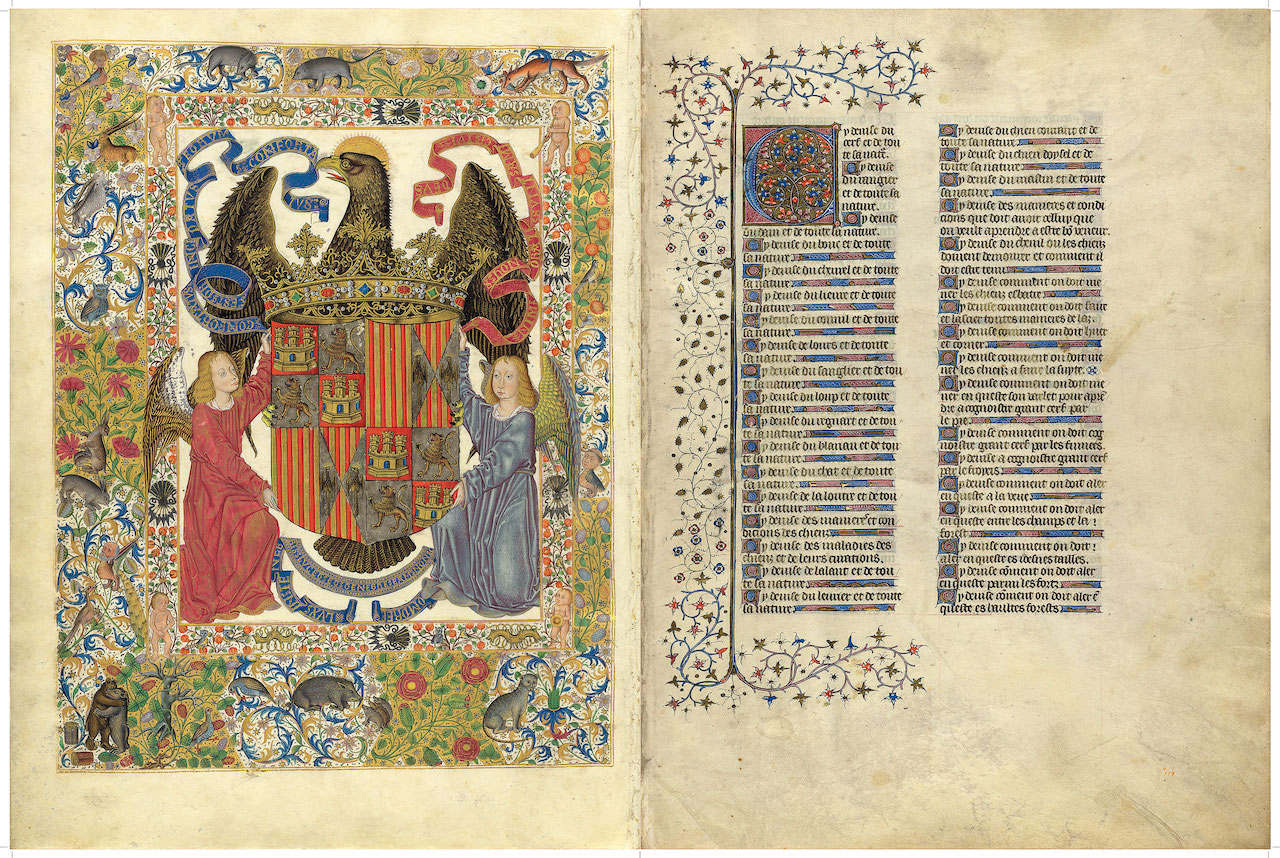 CONFORTA
DEVS
Cy deuise du
cerf et de tou
te sa nat.
Cy deuise
du rangier
et de toute sa
nature.
Cy deuise
du dain et de toute sa nature.
Cy deuise du bouc et de toute
sa nature.
Cy deuise du cheurel et de toute
sa nature.
Cy deuise du lieure et de toute
sa nature.
Cy deuise du connil et de toute
sa nature.
Cy deuise de lours et de toute
sa nature.
Cy deuise du sanglier et de tou
te sa nature.
Cy deuise du loup et de tou
te sa nature.
Cy deuise du regnart et de tou
te sa nature.
Cy deuise du blariau et de tou
te sa nature.
Cy deuise du chat et de toute
sa nature.
Cy deuise de la loutre et de tou
te sa nature.
Cy deuise des manieres et con
dicions des chiens.
Cy deuise des maladies des
chiens et de leurs curations.
Cy deuise de lalant et de tou
te sa nature.
Cy deuise du leurier et de toute
sa nature.
Cy deuise du chien courant et de
toute sa nature.
Cy deuise du chien doysel et de
toute sa nature.
Cy deuise du mastin et de toute
sa nature.
Cy deuise des manieres et condi
cions que doit auoir celluy que
on veult aprendre a estre bõ veneur.
Cy deuise du chenil ou les chiens
doiuent demourer et comment il
doit estre tenu
Cy deuise comment on doit me
ner les chiens esbatre
Cy deuise comment on doit faire
et lacier toutes manieres de laz.
Cy deuise comment on doit huer
et corner.
Cy deuise comment on doit me
ner les chiens a faire la suyte.
Cy deuise comment on doit me
ner en queste son varlet pour apren
dre a cognoistre grant cerf par
le pie.
Cy deuise comment on doit cog
noistre grant cerf par les fumees.
Cy deuise a cognoistre grant cerf
par le froyeis.
Cy deuise comment on doit aler
en queste a la veue.
Cy deuise comment on doit aler
en queste entre les champs et la
forest.
Cy deuise comment on doit
aler en queste es ieunes tailles.
Cy deuise cõment on doit aler
en queste parmi les fortz.
Cy deuise cõment on doit aler ẽ
queste es haultes forests.